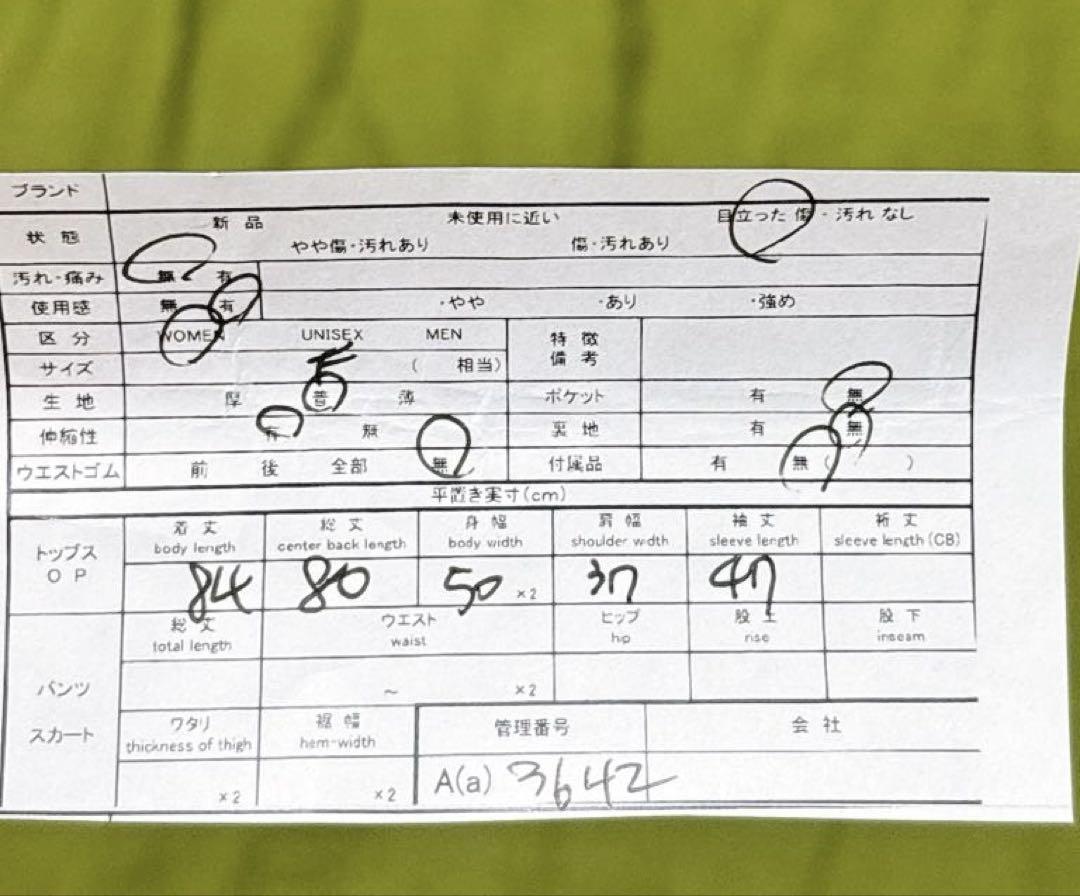 ブランド
状態 新品 未使用に近い 目立った傷・汚れなし
やや傷・汚れあり 傷・汚れあり
汚れ・痛み 無 有
使用感 無 有 ・やや ・あり ・強め
区分 WOMEN UNISEX MEN 特徴
備考
サイズ F ( 相当)
生地 厚 普 薄 ポケット 有 無
伸縮性 有 無 裏地 有 無
ウエストゴム 前 後 全部 無 付属品 有 無 ( )
平置き実寸(cm)
トップス
OP
着丈 総丈 身幅 肩幅 袖丈 裄丈
body length center back length body width shoulder width sleeve length sleeve length (CB)
84 80 50 ×2 37 47
総丈 ウエスト ヒップ 股上 股下
total length waist hip rise inseam
パンツ ～ ×2
スカート ワタリ 裾幅 管理番号 会社
thickness of thigh hem-width
×2 ×2 A(a) 3642